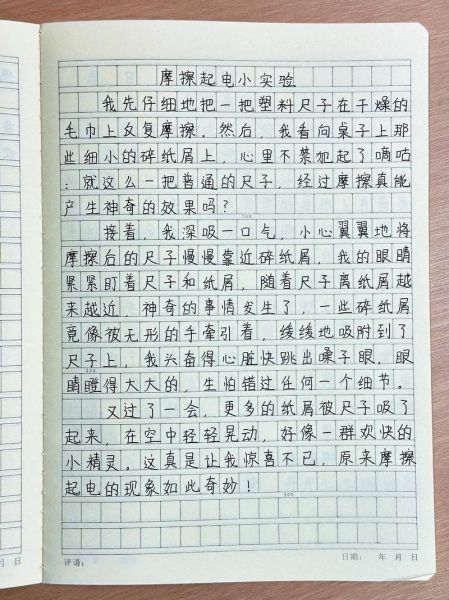 摩擦起电小实验
我先仔细地把一把塑料尺子在干燥的
毛巾上反复摩擦。然后，我看向桌子上那
些细小的碎纸屑上，心里不禁犯起了嘀咕
：就这么一把普通的尺子，经过摩擦真能
产生神奇的效果吗？
100
接着，我深吸一口气，小心翼翼地将
摩擦后的尺子慢慢靠近碎纸屑，我的眼睛
紧紧盯着尺子和纸屑，随着尺子离纸屑越
来越近，神奇的事情发生了，一些碎纸屑
竟像被无形的手牵引着，缓缓地吸附到了
尺子上，我兴奋得心脏快跳出嗓子眼，眼
200
睛瞪得大大的，生怕错过任何一个细节。
又过了一会，更多的纸屑被尺子吸了
起来，在空中轻轻晃动，好像一群欢快的
小精灵。这真是让我惊喜不已，原来摩擦
起电的现象如此奇妙！
300
评语：
日期： 年 月 日
月 日